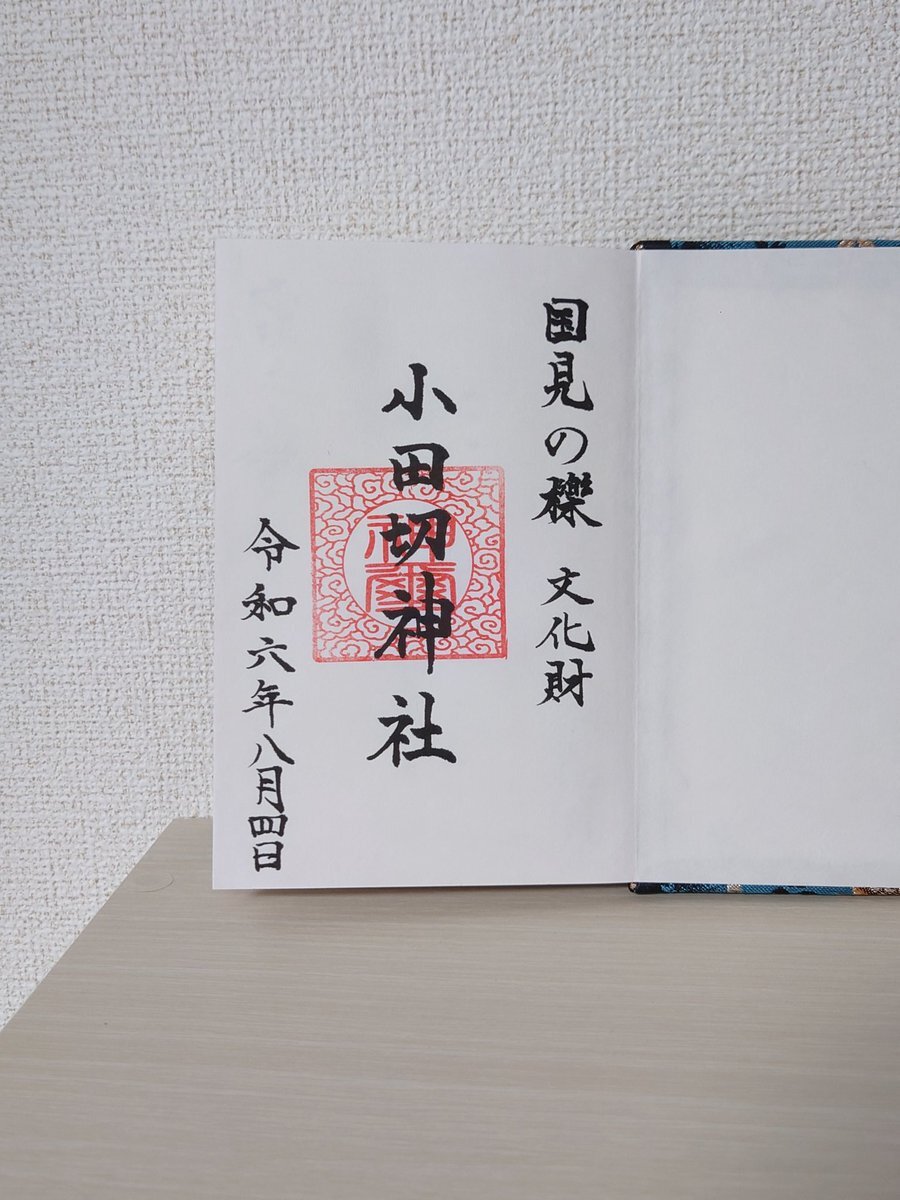 国見の櫟 文化財
小田切神社
神璽
令和六年八月四日